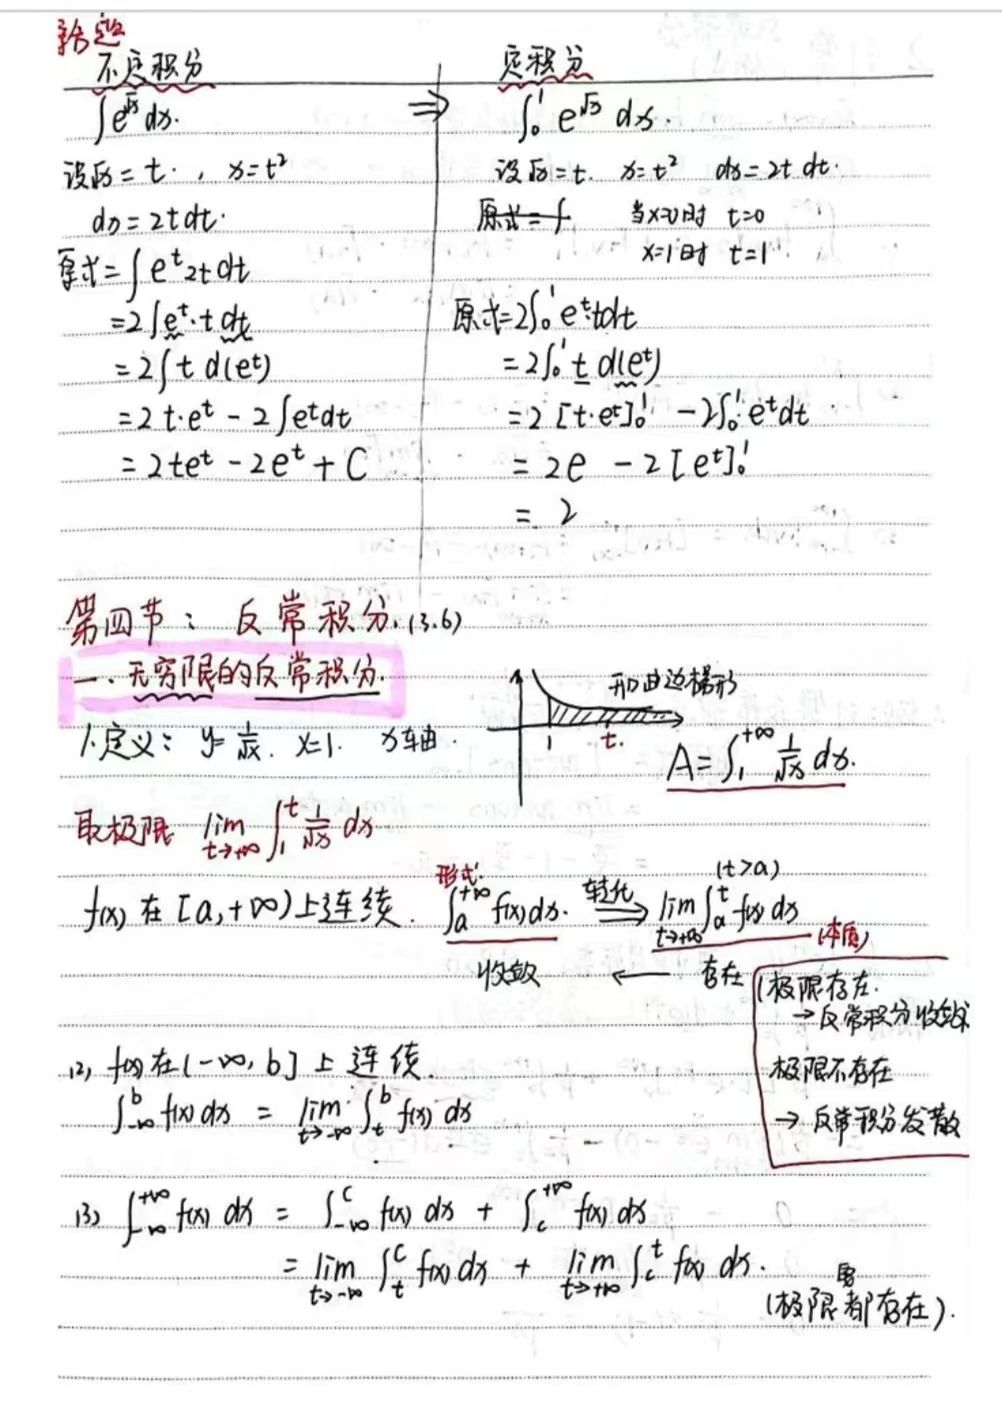 新题
不定积分
∫e^√x dx.
设√x = t. , x = t²
dx = 2t dt.
原式 = ∫ e^t 2t dt
= 2∫ e^t · t dt
= 2∫ t d(e^t)
= 2 t·e^t − 2∫e^t dt
= 2te^t − 2e^t + C
⇒
定积分
∫₀¹ e^√x dx.
设√x = t. x = t² dx = 2t dt.
原式 = ∫ 当x=0时 t=0
x=1时 t=1
原式 = 2∫₀¹ e^t·t dt
= 2∫₀¹ t d(e^t)
= 2 [t·e^t]₀¹ − 2∫₀¹ e^t dt
= 2e − 2[e^t]₀¹
= 2
第四节: 反常积分.(3.6)
一. 无穷限的反常积分.
1.定义: y = 1/√x. x=1. x轴.
开口曲边梯形
1 t.
A = ∫₁^{+∞} 1/√x dx.
取极限 lim_{t→+∞} ∫₁^t 1/√x dx
f(x) 在 [a,+∞) 上连续. 形式: ∫_a^{+∞} f(x) dx. 转化 ⇒ lim_{t→+∞} ∫_a^t f(x) dx (t>a) (本质)
收敛 ← 存在
(极限存在.
→ 反常积分收敛
极限不存在
→ 反常积分发散
(2) f(x) 在 (−∞, b] 上连续.
∫_{−∞}^b f(x) dx = lim_{t→−∞} ∫_t^b f(x) dx
(3) ∫_{−∞}^{+∞} f(x) dx = ∫_{−∞}^c f(x) dx + ∫_c^{+∞} f(x) dx
= lim_{t→−∞} ∫_t^c f(x) dx + lim_{t→+∞} ∫_c^t f(x) dx.
(极限都存在).